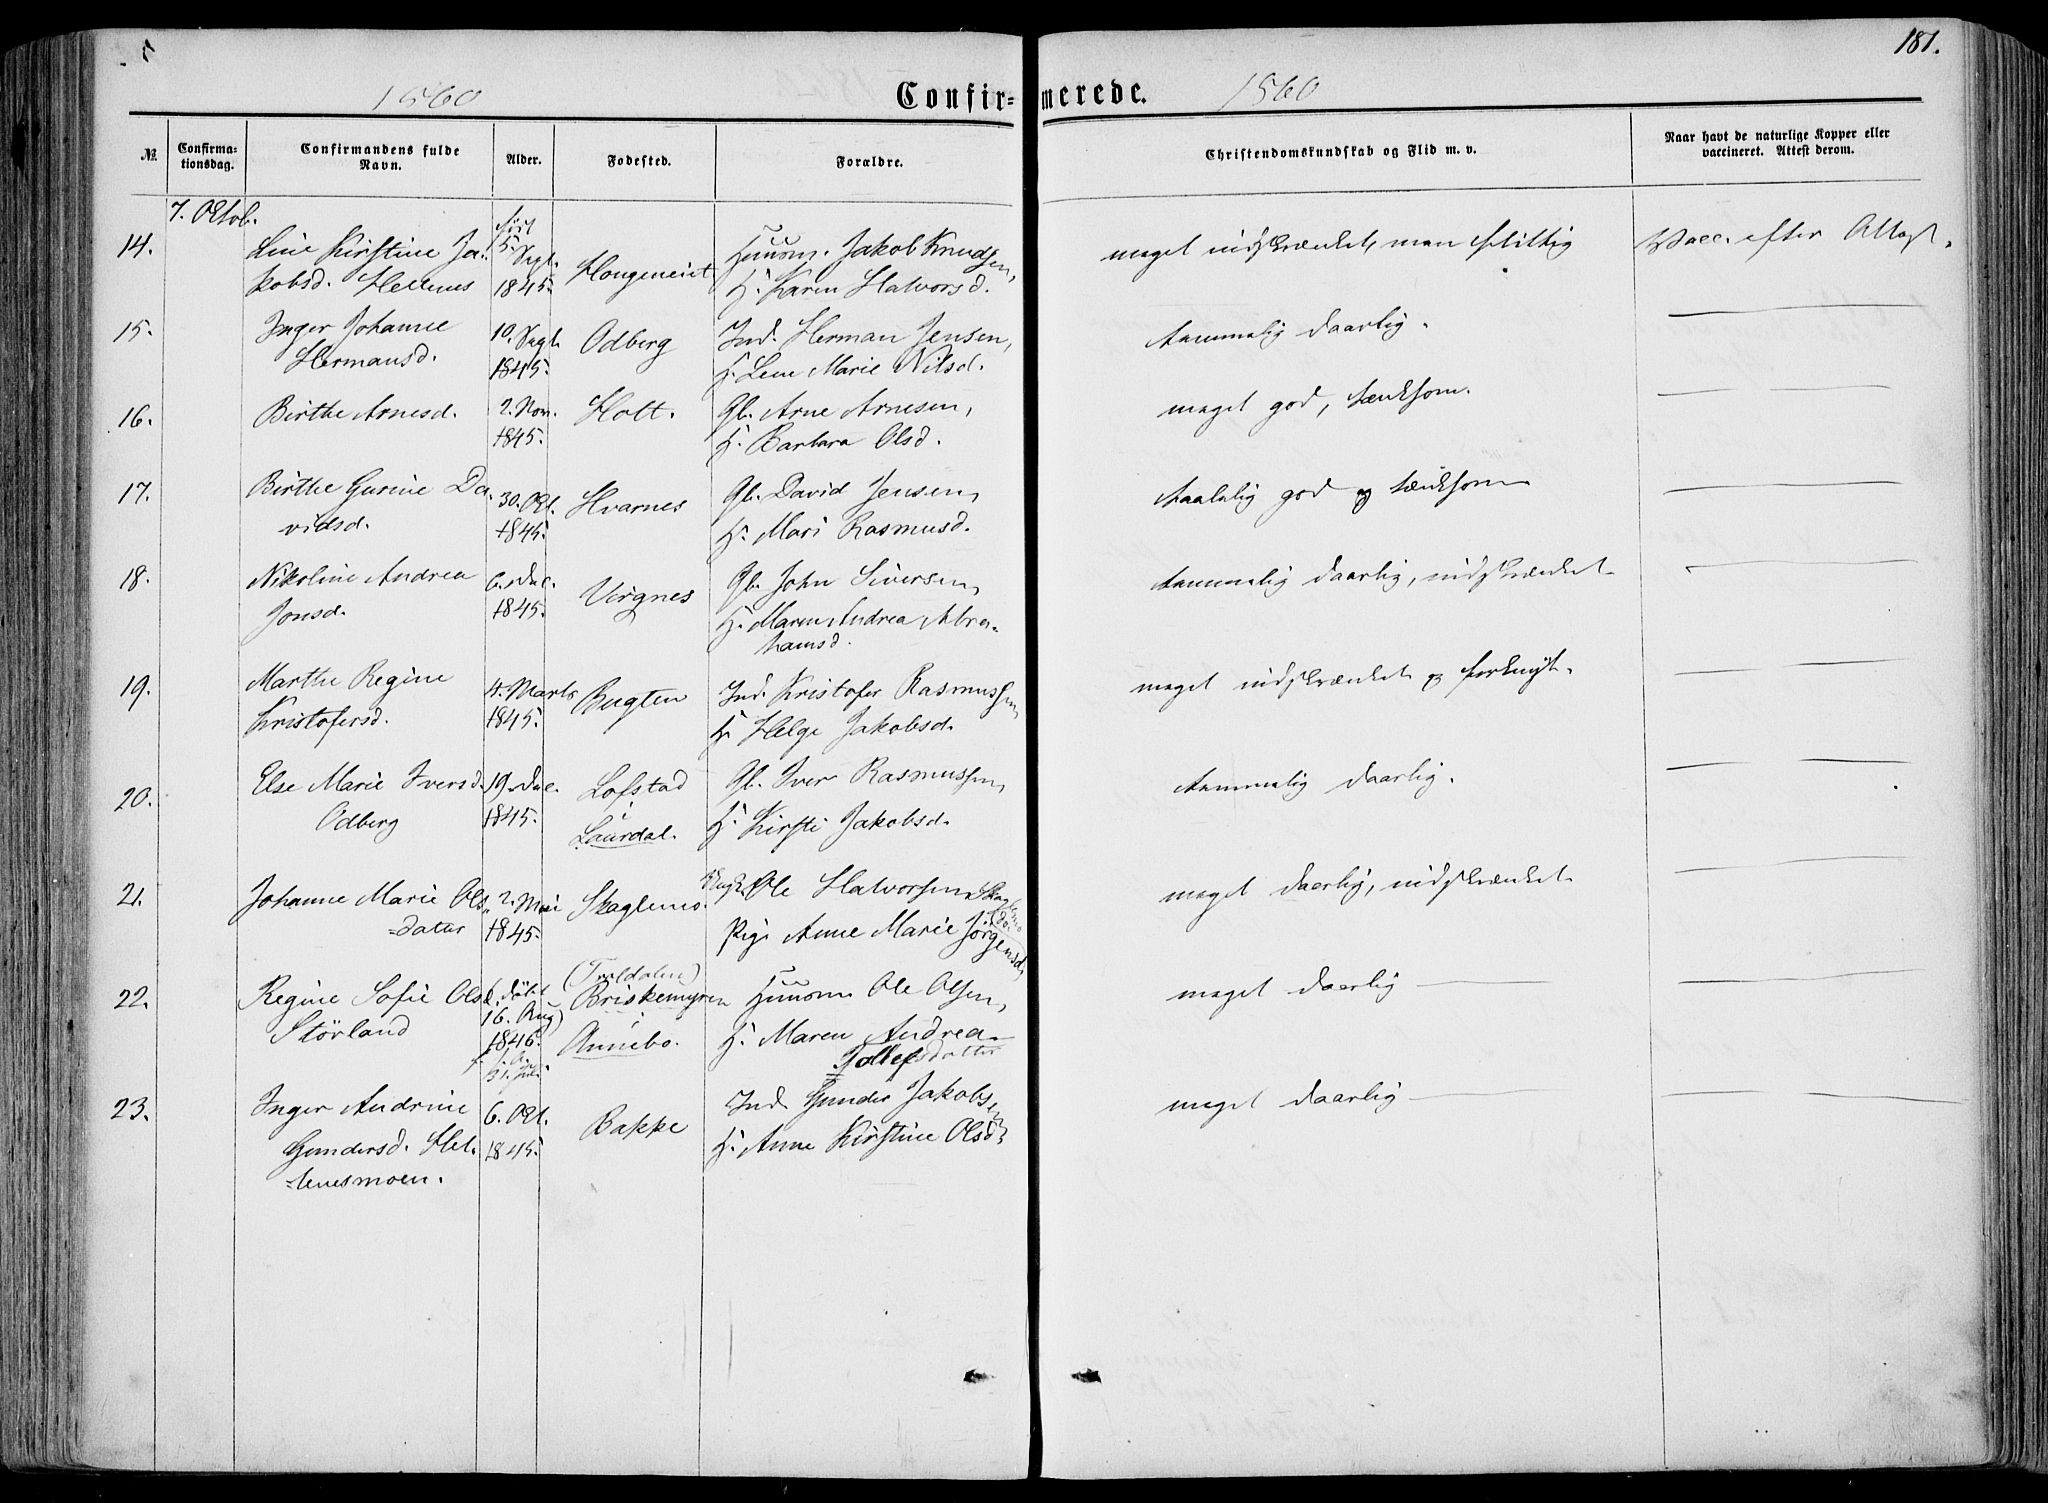 181.
1860 Confir= merede. 1860
No. Confirma-tionsdag. Confirmandens fulde Navn. Alder. Fodested. Forældre. Christendomskundskab og Flid m. v. Naar havt de naturlige Kopper eller vaccineret. Attest derom.
7. Oktob.
14. Line Kirstine Ja- født 5. Sept. Huusm. Jakob Knudsen, meget indskrænket, men flittig Vacc. efter Attest.
kobsd. 1845. Haugeneiet H. Karen Halvorsd.
15. Inger Johanne 10. Sept. Odberg Ind. Herman Jensen, temmelig daarlig.
Hermansd. 1845. H. Lene Marie Nilsd.
16. Birthe Arnesd. 2. Nov. Holt. Gb. Arne Arnesen, meget god, tænksom.
1845. H. Barbara Olsd.
17. Birthe Gurine Da- 30. Okt. Hvarnes Gb. David Jensen, taalelig god og tænksom
vidsd. 1845. H. Mari Rasmusd.
18. Nikoline Andrea 6. Dec. Virgnes Gb. John Siversen, temmelig daarlig, indskrænket
Jonsd. 1845. H. Maren Andrea Abra-
hamsd.
19. Marthe Regine 4. Marts Bugten Ind. Kristofer Rasmussen, meget indskrænket og forknyt.
Kristofersd. 1845. H. Helge Jakobsd.
20. Else Marie Iversd. 19. Dec. Lofstad Gb. Iver Rasmussen, temmelig daarlig.
Odberg 1845. i Laurdal. H. Kirsti Jakobsd.
21. Johanne Marie Ols- 2. Mai Skaglemo. Ungk. Ole Halvorsen Skaglemo meget daarlig, indskrænket
=datter 1845. Pige Anne Marie Jørgensd. ibd.
22. Regine Sofie Olsd. (døbt (Traldalen) Briskemyren Huusm. Ole Olsen, meget daarlig
Störland 16. Aug) 1846. i Annebo. H. Maren Andrea
31. Juli Tollefsdatter
23. Inger Andrine 6. Okt. Bakke Ind. Gunder Jakobsen meget daarlig
Gundersd. Hel- 1845. H. Anne Kirstine Olsd.
=lenesmoen.